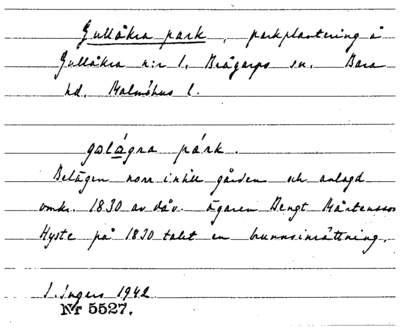 Gullåkra park, parkplantering å
Gullåkra n:r 1, Brågarps sn. Bara
hd. Malmöhus l.
gɷlágra párk.
Belägen norr intill gården och anlagd
omkr. 1830 av dåv. ägaren Bengt Mårtensson
Hyste på 1830 talet en brunnsinrättning.
I. Ingers 1942
Nr 5527.